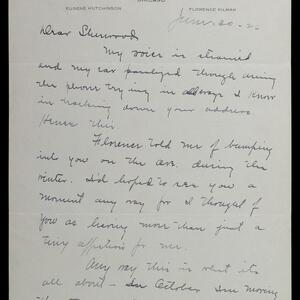 CHICAGO
EUGENE HUTCHINSON
FLORENCE KILMAN
June 30 - 26
Dear Sherwood
My voice is strained
and my ear paralyzed through using
the phone trying in all ways I know
in tracking down your address.
Hence this.
Florence told me of bumping
into you on the ave. during the
winter. I'd hoped to see you a
moment any way for I thought of
you as having more than just a
tiny affection for me.
Any way this is what its
all about — In October I'm moving